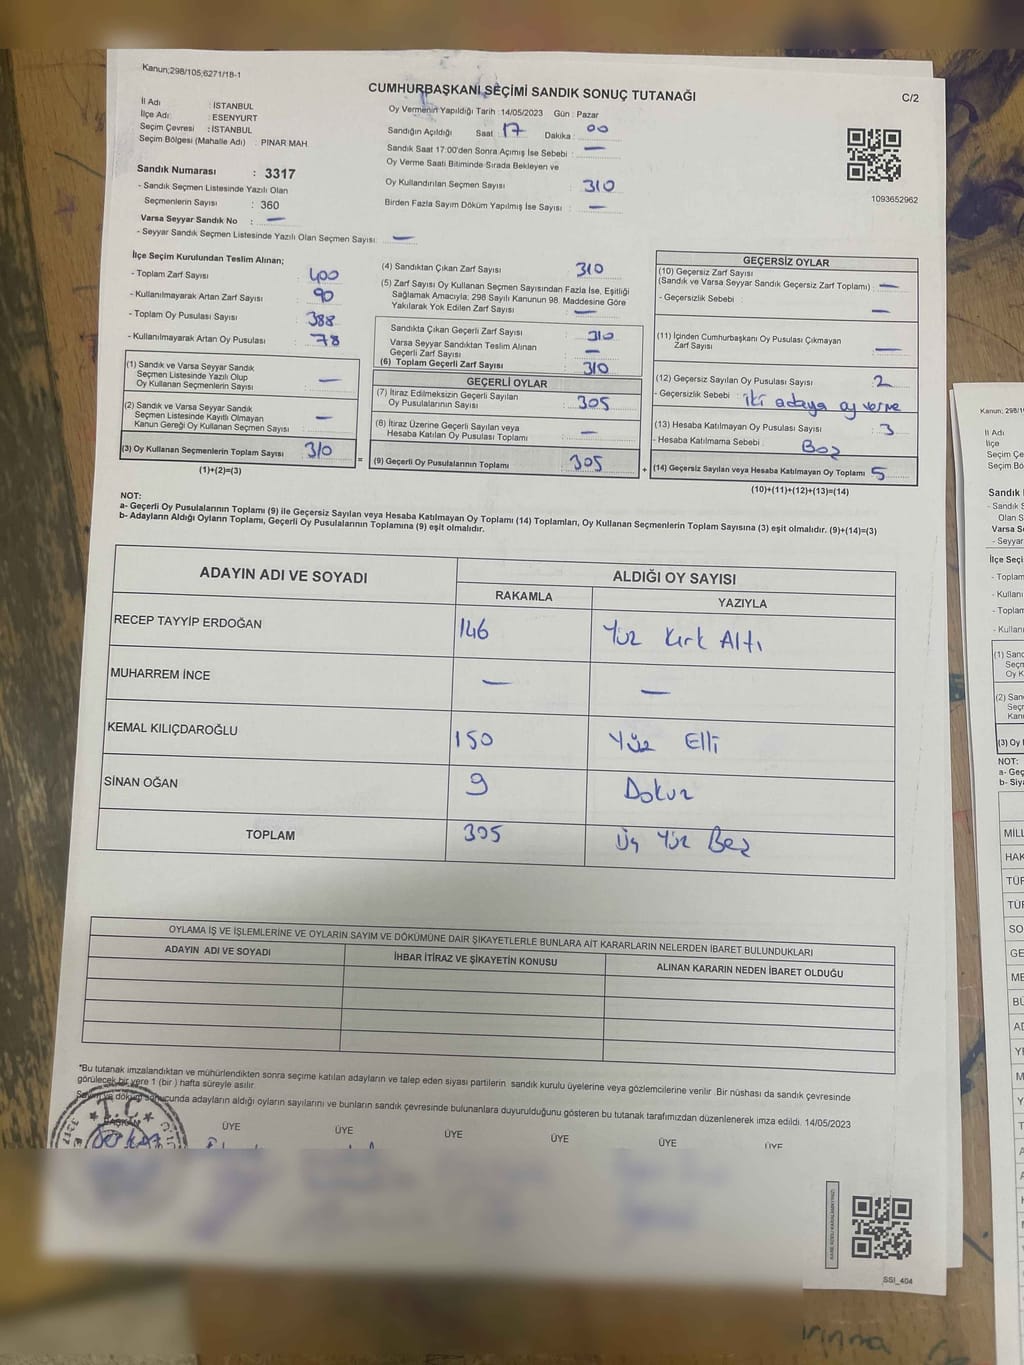 Kanun;298/105;6271/18-1
CUMHURBAŞKANI SEÇİMİ SANDIK SONUÇ TUTANAĞI
C/2
İl Adı : İSTANBUL
İlçe Adı : ESENYURT
Seçim Çevresi : İSTANBUL
Seçim Bölgesi (Mahalle Adı) : PINAR MAH.
Oy Vermenin Yapıldığı Tarih : 14/05/2023 Gün : Pazar
Sandığın Açıldığı Saat 17 Dakika : 00
Sandık Saat 17:00'den Sonra Açmış İse Sebebi : —
Oy Verme Saati Bitiminde Sırada Bekleyen ve
Oy Kullandırılan Seçmen Sayısı : 310
Birden Fazla Sayım Döküm Yapılmış İse Sayısı : —
1093652962
Sandık Numarası : 3317
- Sandık Seçmen Listesinde Yazılı Olan
Seçmenlerin Sayısı : 360
Varsa Seyyar Sandık No : —
- Seyyar Sandık Seçmen Listesinde Yazılı Olan Seçmen Sayısı: —
İlçe Seçim Kurulundan Teslim Alınan;
- Toplam Zarf Sayısı : 400
- Kullanılmayarak Artan Zarf Sayısı : 90
- Toplam Oy Pusulası Sayısı : 388
- Kullanılmayarak Artan Oy Pusulası : 78
(1) Sandık ve Varsa Seyyar Sandık
Seçmen Listesinde Yazılı Olup
Oy Kullanan Seçmenlerin Sayısı : —
(2) Sandık ve Varsa Seyyar Sandık
Seçmen Listesinde Kayıtlı Olmayan
Kanun Gereği Oy Kullanan Seçmen Sayısı : —
(3) Oy Kullanan Seçmenlerin Toplam Sayısı : 310
(1)+(2)=(3)
(4) Sandıktan Çıkan Zarf Sayısı : 310
(5) Zarf Sayısı Oy Kullanan Seçmen Sayısından Fazla İse, Eşitliği
Sağlamak Amacıyla; 298 Sayılı Kanunun 98. Maddesine Göre
Yakılarak Yok Edilen Zarf Sayısı : —
Sandıkta Çıkan Geçerli Zarf Sayısı : 310
Varsa Seyyar Sandıktan Teslim Alınan
Geçerli Zarf Sayısı : —
(6) Toplam Geçerli Zarf Sayısı : 310
GEÇERLİ OYLAR
(7) İtiraz Edilmeksizin Geçerli Sayılan
Oy Pusulalarının Sayısı : 305
(8) İtiraz Üzerine Geçerli Sayılan veya
Hesaba Katılan Oy Pusulası Toplamı : —
(9) Geçerli Oy Pusulalarının Toplamı : 305
GEÇERSİZ OYLAR
(10) Geçersiz Zarf Sayısı
(Sandık ve Varsa Seyyar Sandık Geçersiz Zarf Toplamı) : —
- Geçersizlik Sebebi : —
(11) İçinden Cumhurbaşkanı Oy Pusulası Çıkmayan
Zarf Sayısı : —
(12) Geçersiz Sayılan Oy Pusulası Sayısı : 2
- Geçersizlik Sebebi : iki adaya oy verme
(13) Hesaba Katılmayan Oy Pusulası Sayısı : 3
- Hesaba Katılmama Sebebi : Boş
(14) Geçersiz Sayılan veya Hesaba Katılmayan Oy Toplamı : 5
(10)+(11)+(12)+(13)=(14)
NOT:
a- Geçerli Oy Pusulalarının Toplamı (9) ile Geçersiz Sayılan veya Hesaba Katılmayan Oy Toplamı (14) Toplamları, Oy Kullanan Seçmenlerin Toplam Sayısına (3) eşit olmalıdır. (9)+(14)=(3)
b- Adayların Aldığı Oyların Toplamı, Geçerli Oy Pusulalarının Toplamına (9) eşit olmalıdır.
ADAYIN ADI VE SOYADI ALDIĞI OY SAYISI
RAKAMLA YAZIYLA
RECEP TAYYİP ERDOĞAN 146 Yüz Kırk Altı
MUHARREM İNCE — —
KEMAL KILIÇDAROĞLU 150 Yüz Elli
SİNAN OĞAN 9 Dokuz
TOPLAM 305 Üç Yüz Beş
OYLAMA İŞ VE İŞLEMLERİNE VE OYLARIN SAYIM VE DÖKÜMÜNE DAİR ŞİKAYETLERLE BUNLARA AİT KARARLARIN NELERDEN İBARET BULUNDUKLARI
ADAYIN ADI VE SOYADI İHBAR İTİRAZ VE ŞİKAYETİN KONUSU ALINAN KARARIN NEDEN İBARET OLDUĞU
*Bu tutanak imzalandıktan ve mühürlendikten sonra seçime katılan adayların ve talep eden siyasi partilerin sandık kurulu üyelerine veya gözlemcilerine verilir. Bir nüshası da sandık çevresinde
görülecek bir yere 1 (bir) hafta süreyle asılır.
Sayım ve döküm sonucunda adayların aldığı oyların sayılarını ve bunların sandık çevresinde bulunanlara duyurulduğunu gösteren bu tutanak tarafımızdan düzenlenerek imza edildi. 14/05/2023
T.C.
BAŞKAN ÜYE ÜYE ÜYE ÜYE ÜYE ÜYE
SSI_404